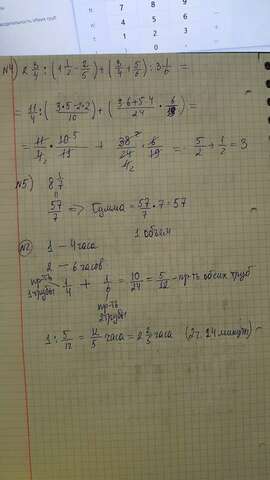 7 8 9
4
1 2 3
0
№4) 2 3/4 : (1 1/2 - 2/5) + (3/4 + 5/6) : 3 1/6 =
= 11/4 : (3·5-2·2/10) + (3·6+5·4/24 · 6/19) =
= 11/4 · 10/11 + 38/24 · 6/19 = 5/2 + 1/2 = 3
№5) 8 1/7
57/7 => Сумма = 57/7 · 7 = 57
1 объём
№2) 1 — 4 часа
2 — 6 часов
пр-ть 1 трубы 1/4 + 1/6 = 10/24 = 5/12 - пр-ть обеих труб
пр-ть 2 трубы
1 : 5/12 = 12/5 часа = 2 2/5 часа (2ч. 24 минут)